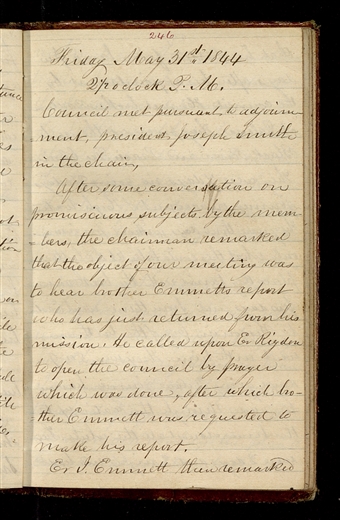 246
Friday May 31st 1844
2 oclock P. M.
Council met pursuant to adjourn-
ment, president Joseph Smith
in the chair,
After some conversation on
promiscuous subjects by the mem-
-bers, the chairman remarked
that the object of our meeting was
to hear brother Emmetts report
who has just returned from his
mission. He called upon Er Rigdon
to open the council by prayer
which was done, after which bro-
ther Emmett was requested to
make his report.
Er J. Emmett then remarked